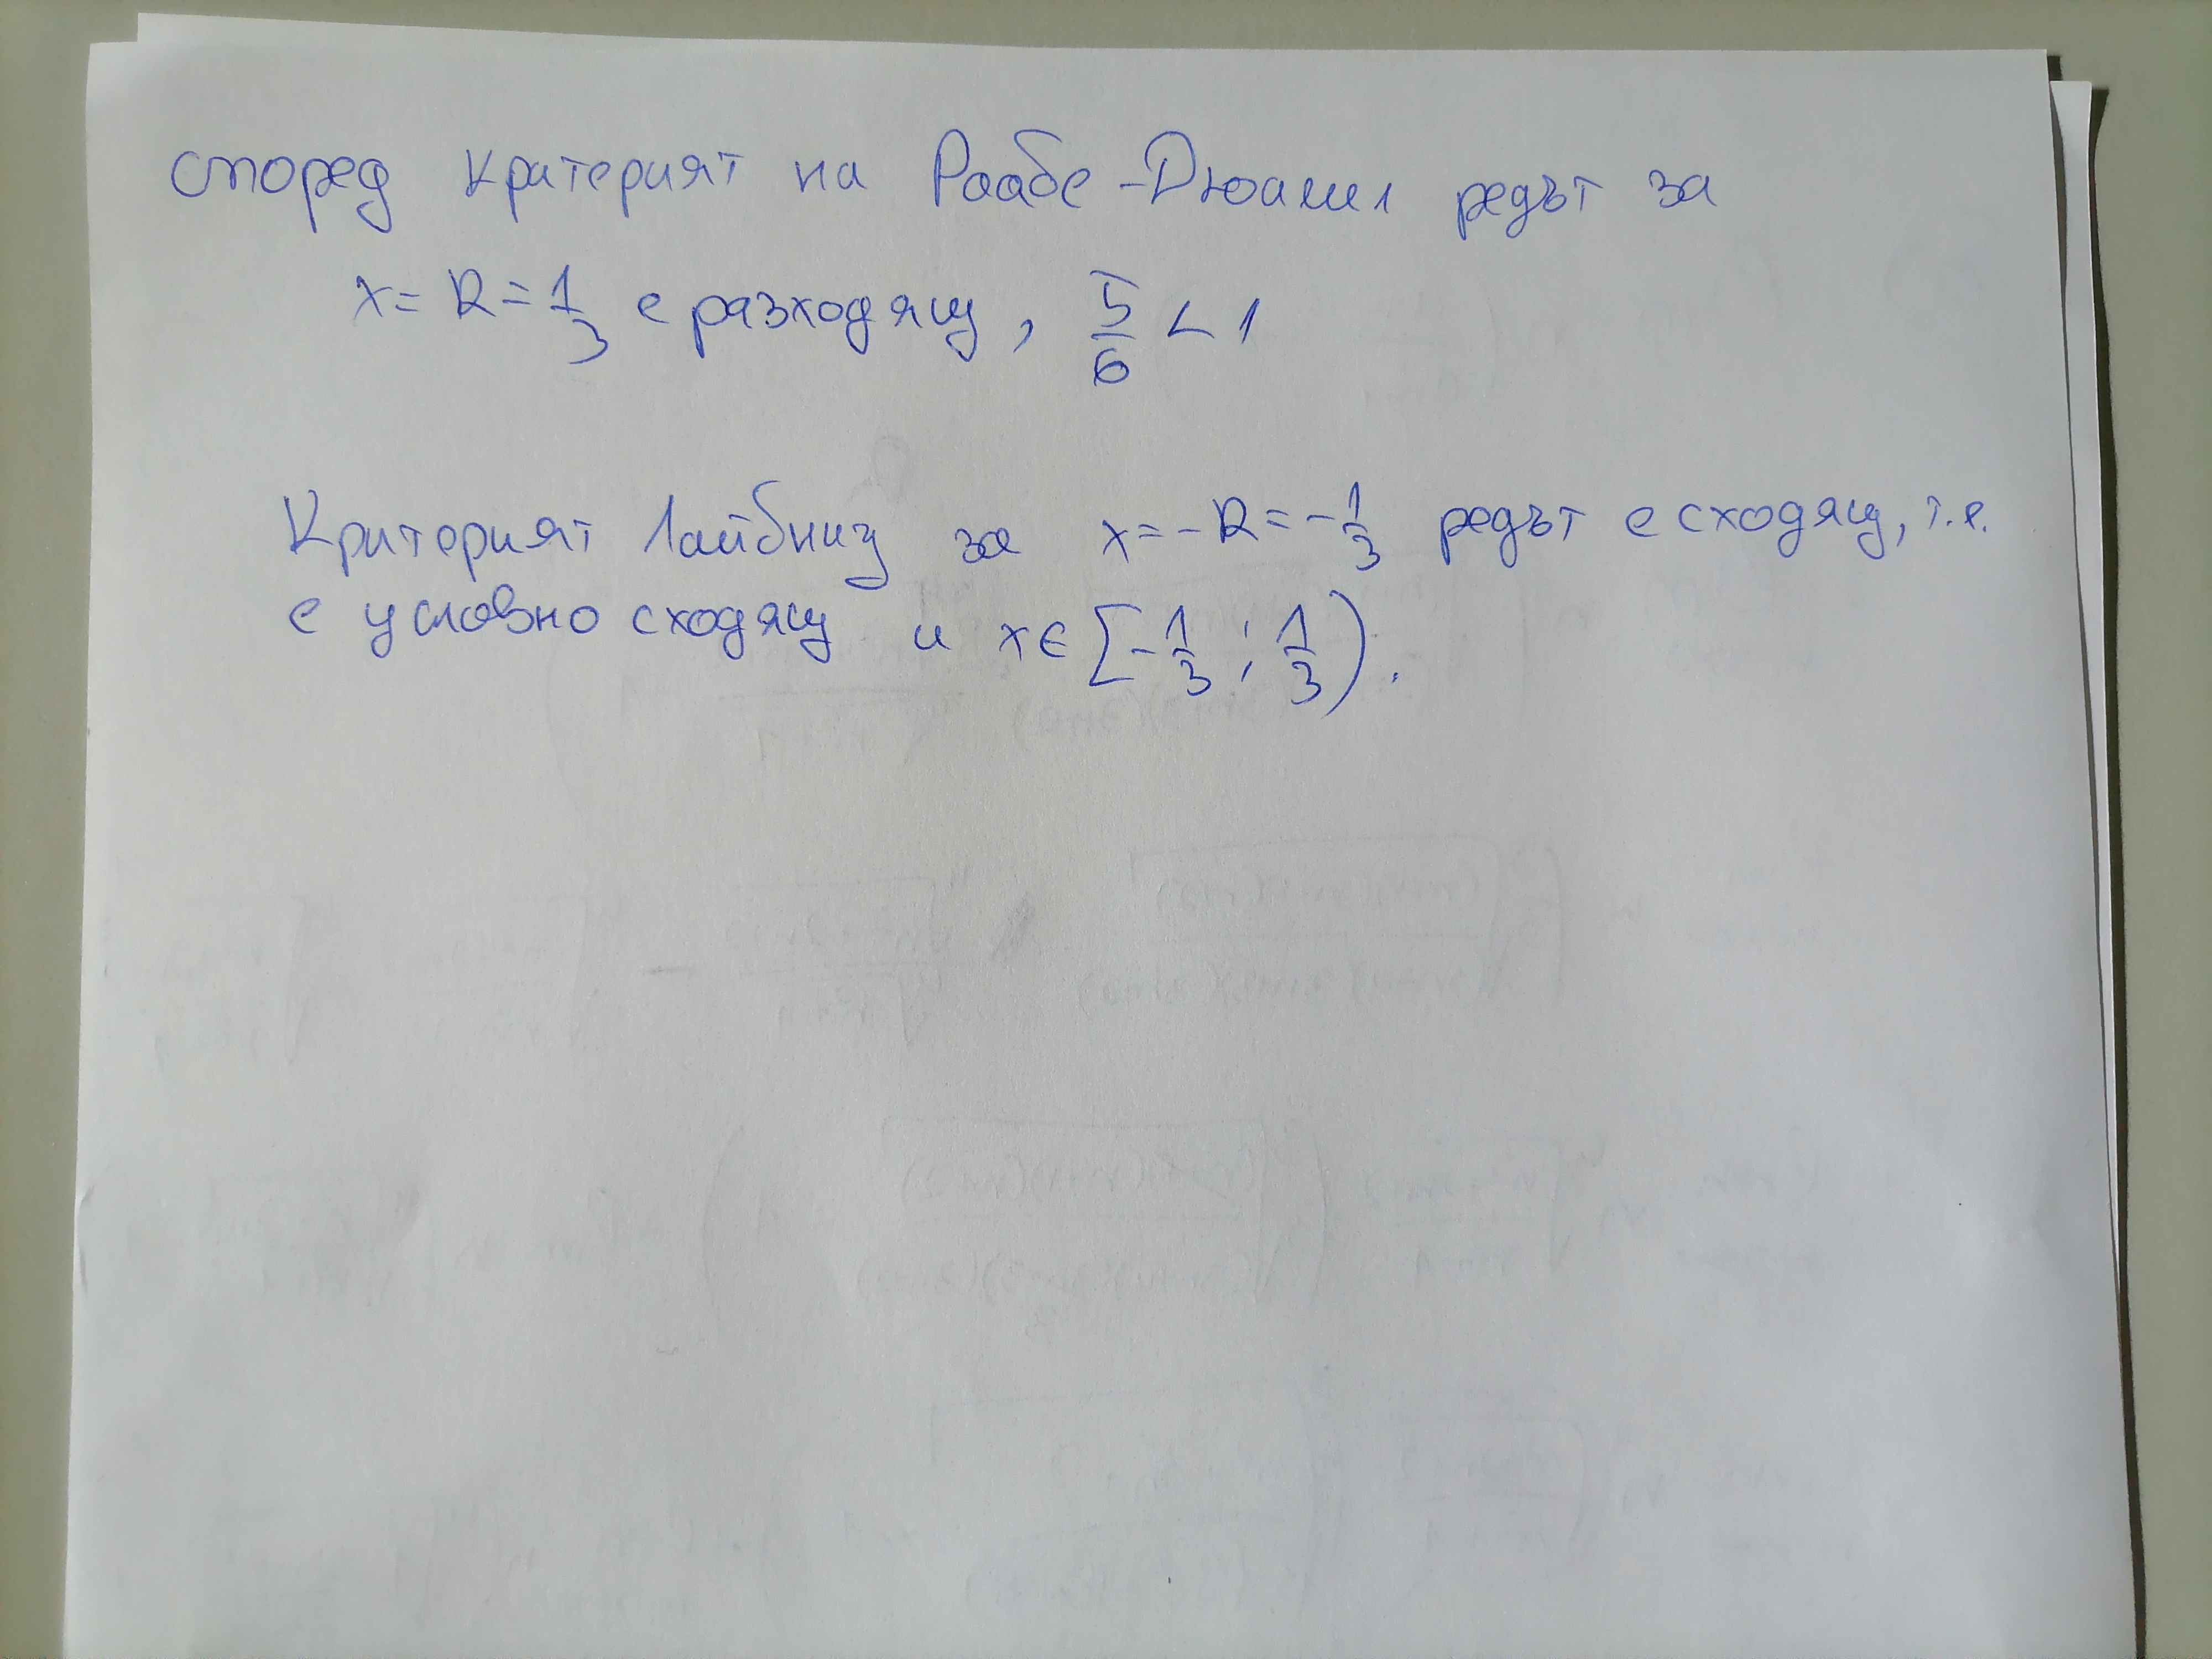 според критерият на Раабе-Дюамел редът за
x = R = 1/3 е разходящ, 5/6 < 1
Критерият Лайбниц за x = -R = -1/3 редът е сходящ, т.е.
е условно сходящ и x ∈ [-1/3 ; 1/3).